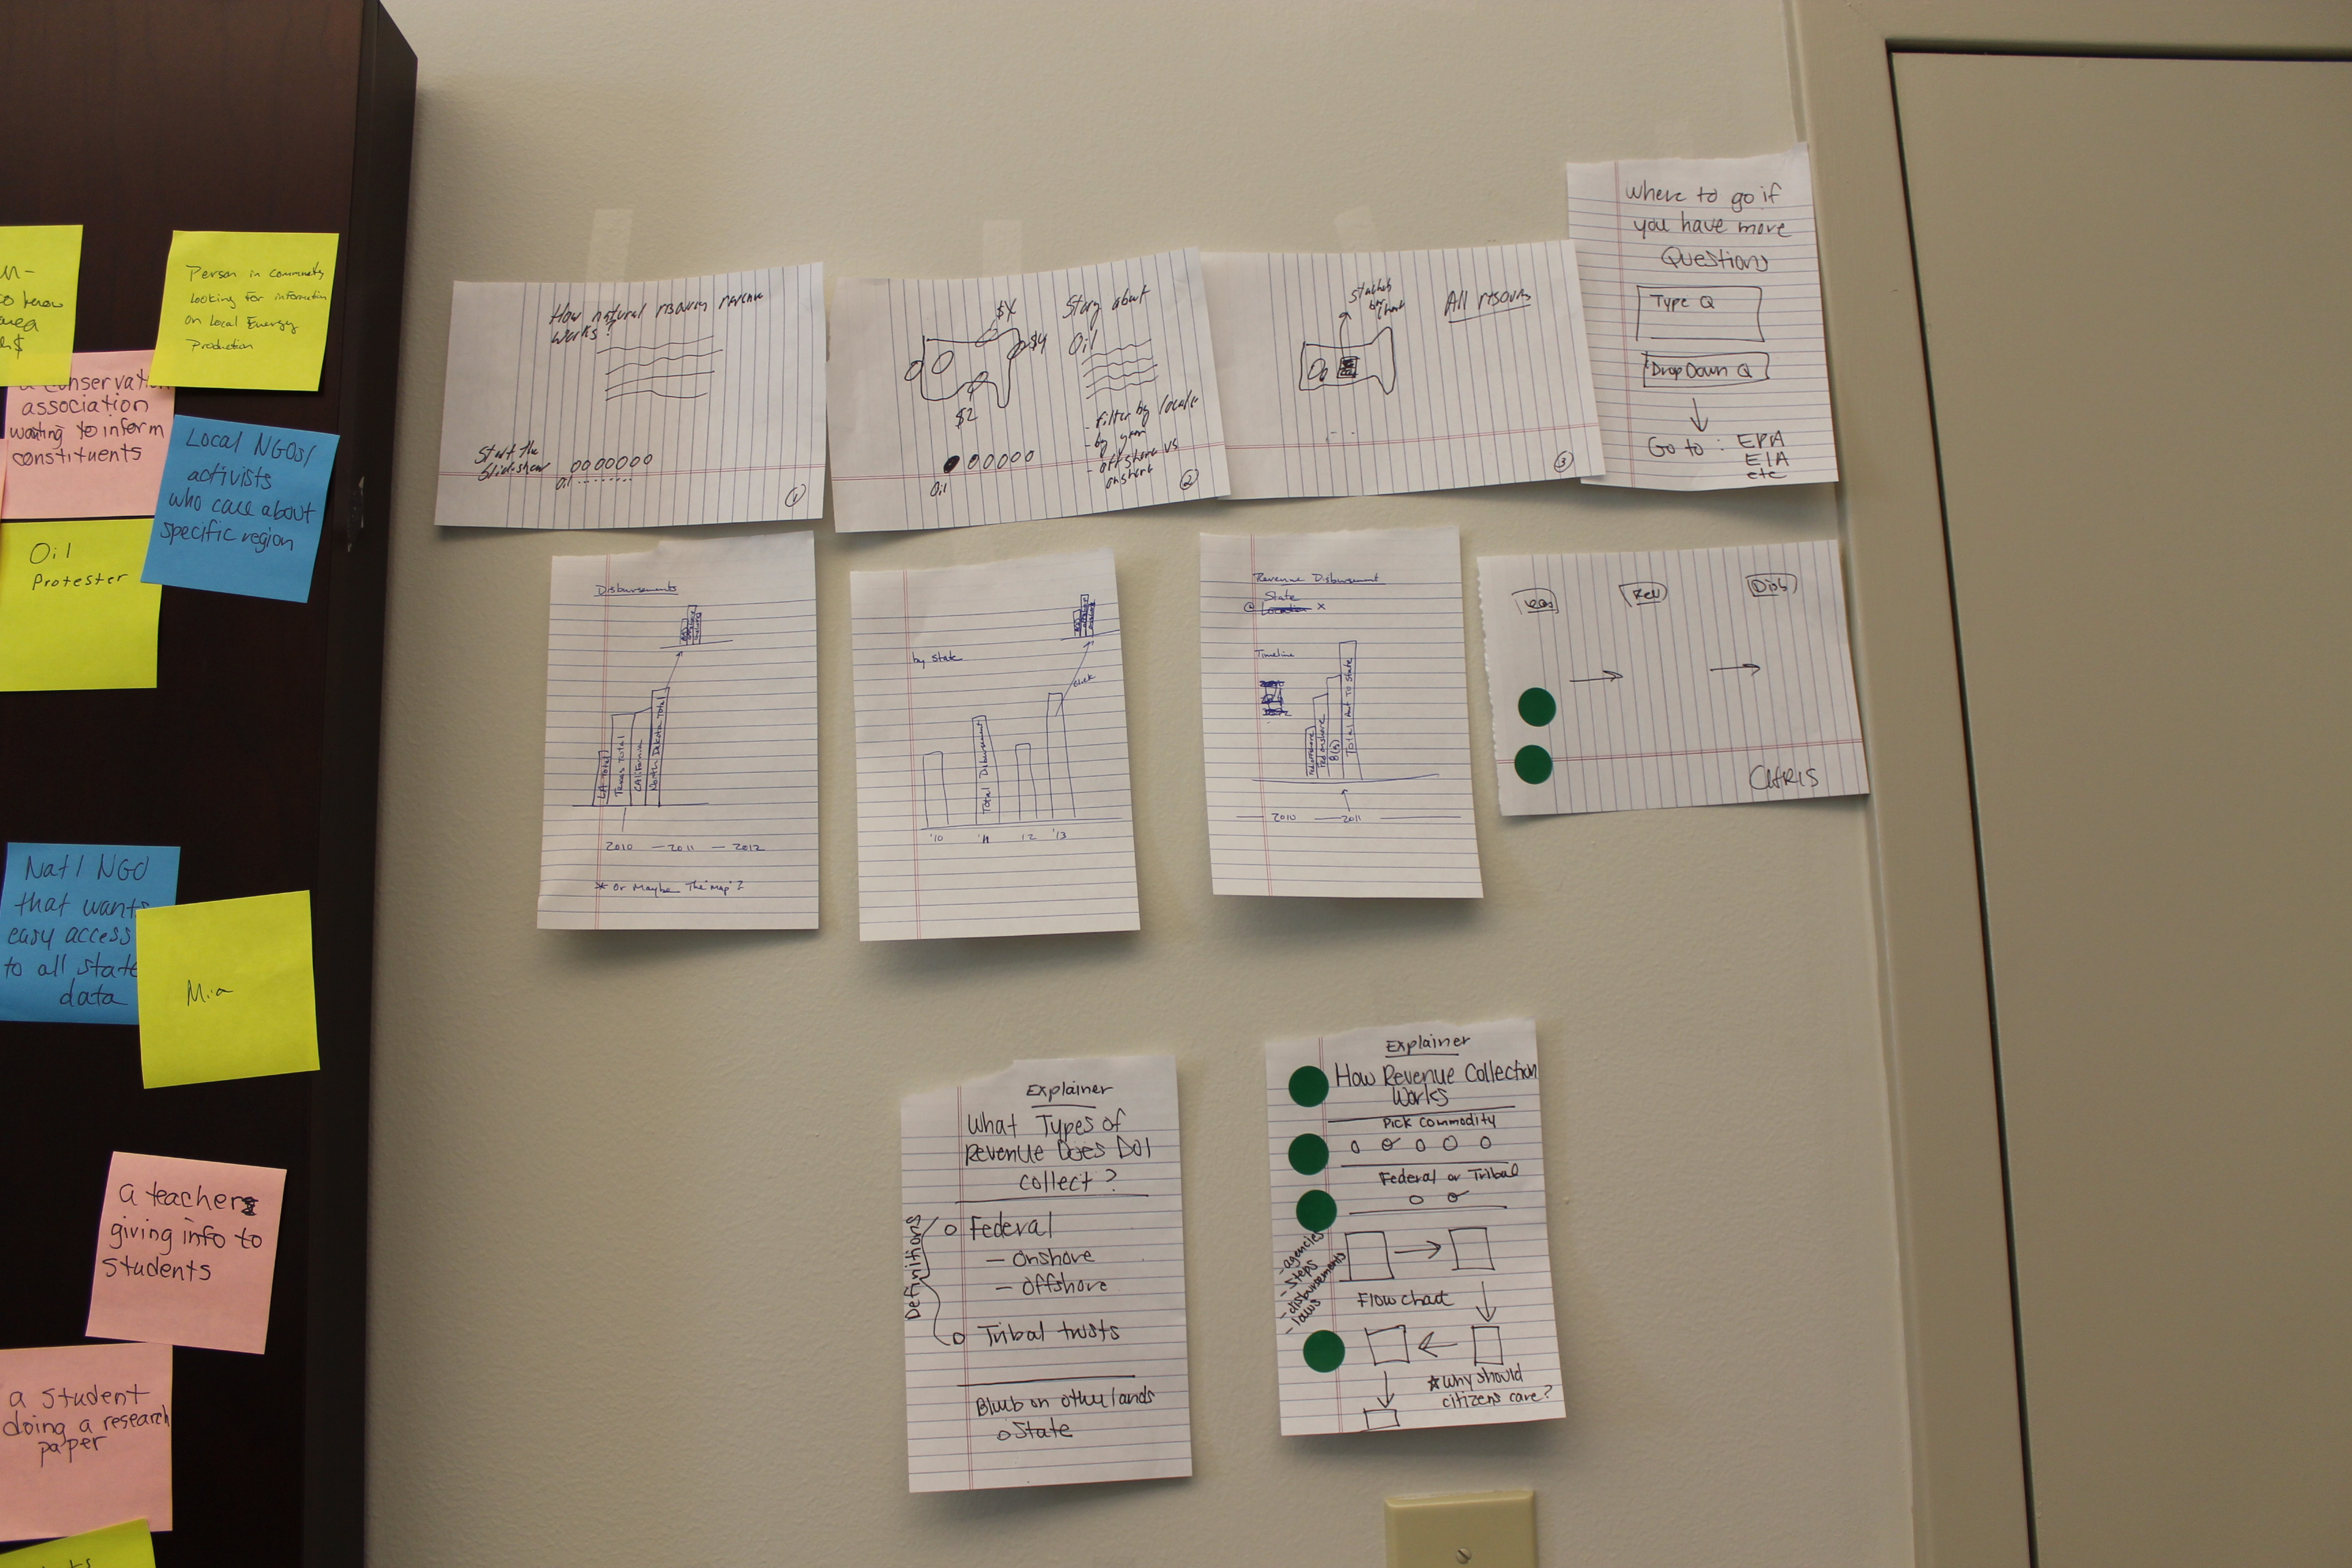 Person in community
looking for information
on Local Energy
Production
a conservation
association
wanting to inform
constituents
Local NGOs/
activists
who care about
specific region
Oil
Protester
Nat'l NGO
that wants
easy access
to all state
data
Mia
a teacher
giving info to
students
a student
doing a research
paper
How natural resources revenue
works?
Start the
Slideshow
Oil
1
$X
$4
$2
Story about
Oil
- filter by locale
- by year
- offshore vs
onshore
Oil
2
Stacked
bar
chart
All resources
3
Where to go if
you have more
Questions
Type Q
Drop Down Q
Go to: EPA
EIA
etc
Disbursements
LA Total
Texas Total
CAlifornia
North Dakota Total
2010 — 2011 — 2012
* Or Maybe The "Map"?
by state
click
Total Disbursement
'10 '11 12 '13
Revenue Disbursement
@ State X
Timeline
Fed onshore
8(g)
Total Amt To State
2010 — 2011
Rev
Disb
CHRIS
Explainer
What Types of
Revenue Does DOI
collect?
Definitions
Federal
— Onshore
— Offshore
Tribal trusts
Blurb on other lands
State
Explainer
How Revenue Collection
Works
Pick Commodity
Federal or Tribal
- agencies
- steps
- disbursements
- laws
Flow chart
* Why should
citizens care?